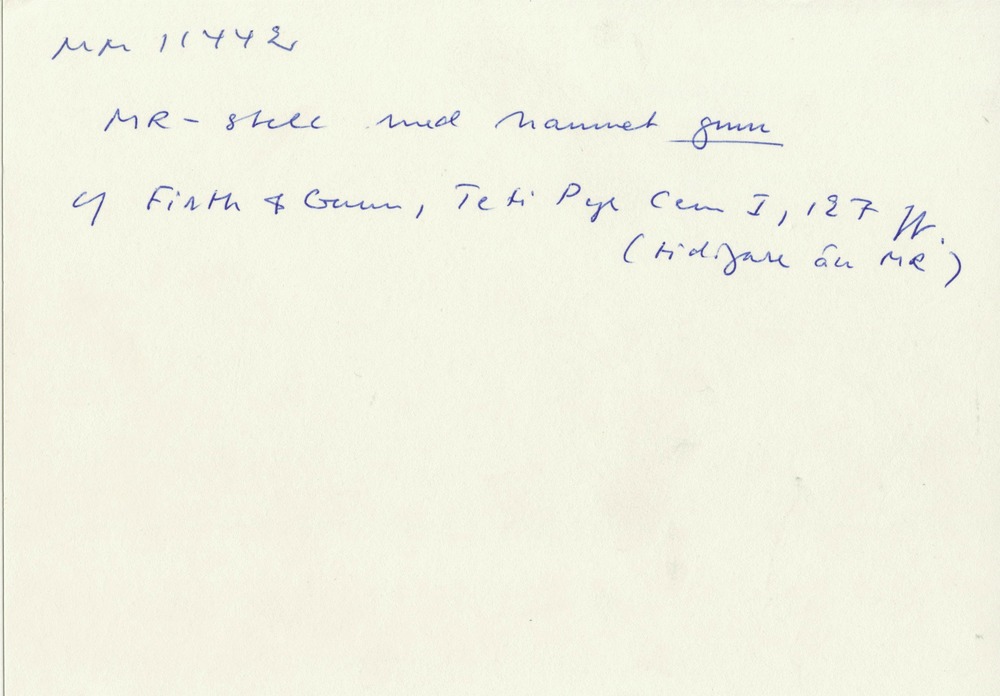 MM 11442
MR - stele med namnet gmn
cf Firth & Gunn, Teti Pyr Cem I, 127 ff.
(tidigare än MR)